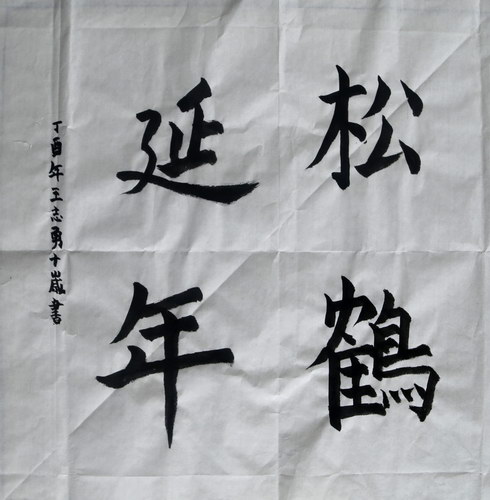 松鹤
延年
丁酉年王志勇十歳書